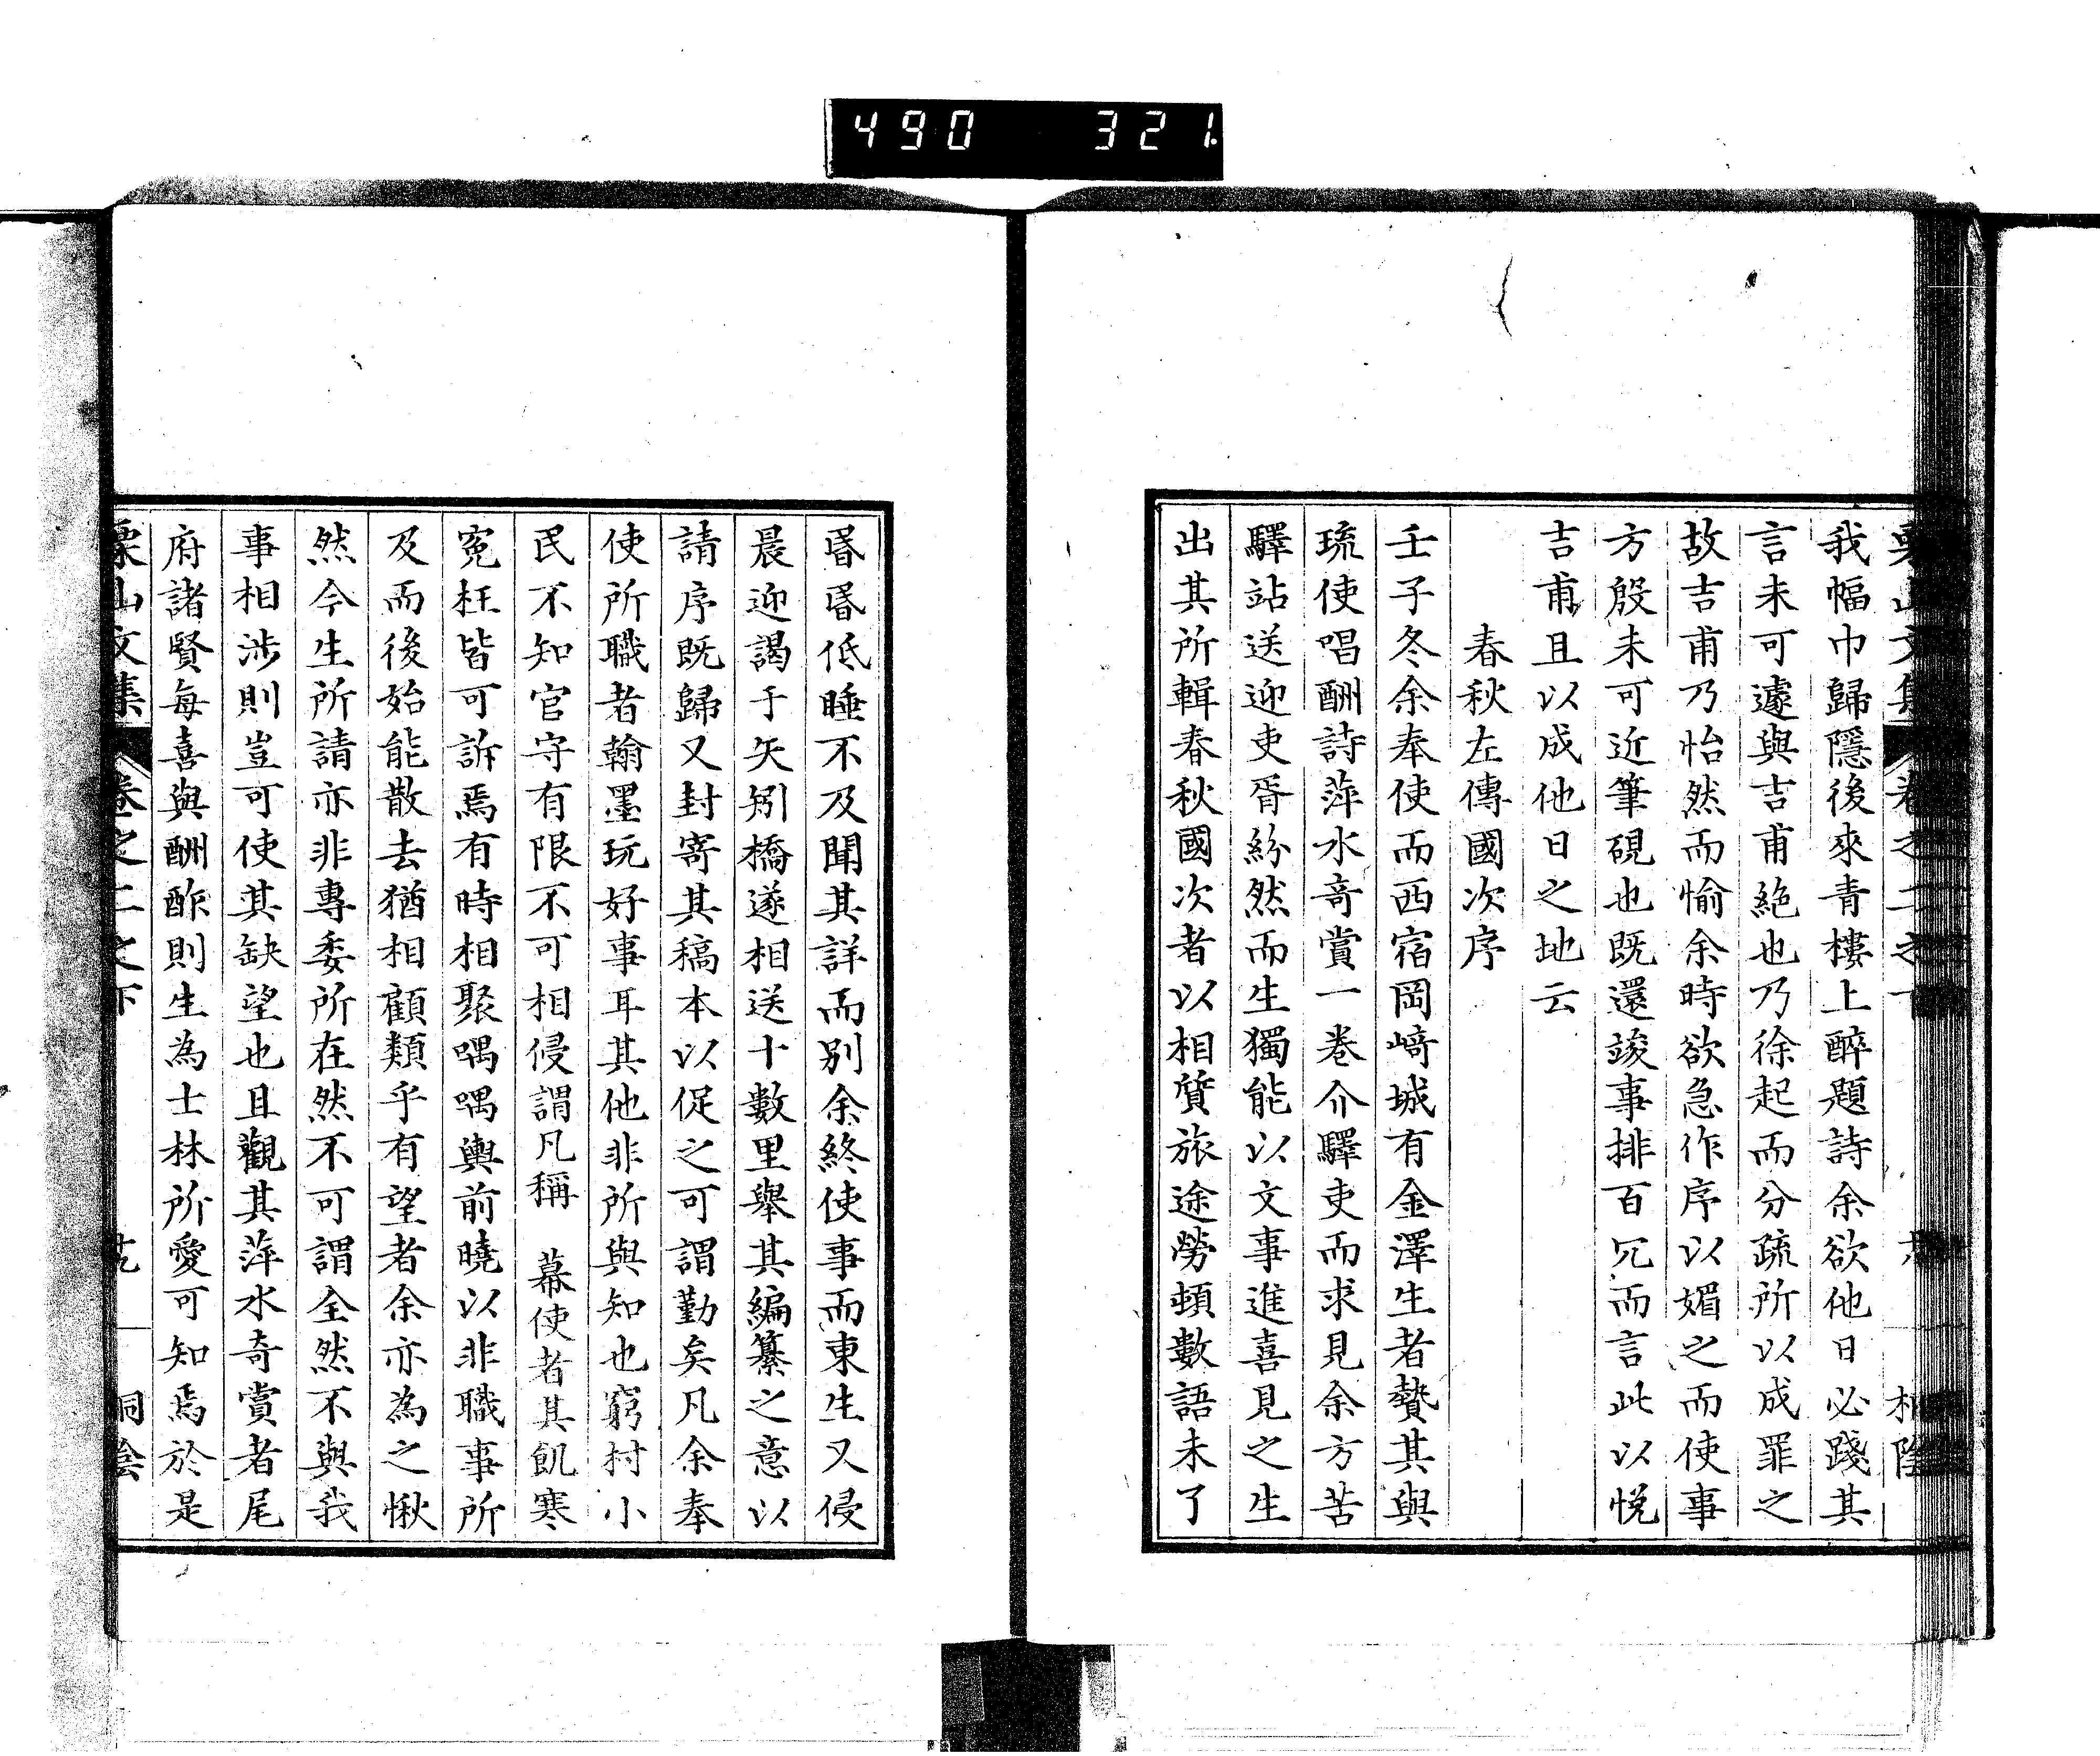 490 321
我幅巾歸隱後來青樓上醉題詩余欲他日必踐其
言未可遽與吉甫絶也乃徐起而分疏所以成罪之
故吉甫乃怡然而愉余時欲急作序以媚之而使事
方殷未可近筆硯也既還竣事排百冗而言此以悅
吉甫且以成他日之地云
春秋左傳國次序
壬子冬余奉使而西宿岡﨑城有金澤生者贄其與
琉使唱酬詩萍水奇賞一卷介驛吏而求見余方苦
驛站送迎吏胥紛然而生獨能以文事進喜見之生
出其所輯春秋國次者以相質旅途勞頓數語未了
昬昬低睡不及聞其詳而別余終使事而東生又侵
晨迎謁于矢矧橋遂相送十數里舉其編纂之意以
請序既歸又封寄其稿本以促之可謂勤矣凡余奉
使所職者翰墨玩好事耳其他非所與知也窮村小
民不知官守有限不可相侵謂凡稱 幕使者其飢寒
寃枉皆可訴焉有時相聚喁喁輿前曉以非職事所
及而後始能散去猶相顧類乎有望者余亦為之愀
然今生所請亦非專委所在然不可謂全然不與我
事相涉則豈可使其缺望也且觀其萍水奇賞者尾
府諸賢每喜與酬酢則生為士林所愛可知焉於是
栗山文集 卷之二之下